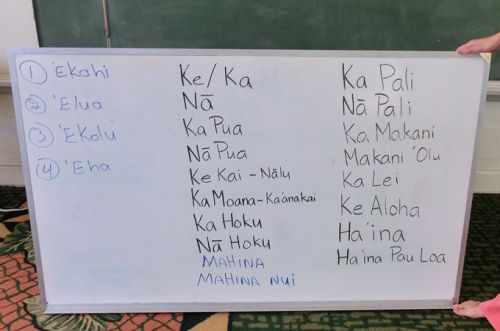 ① 'Ekahi
② 'Elua
③ 'Ekolu
④ 'Eha
Ke/Ka
Nā
Ka Pua
Nā Pua
Ke Kai - Nālu
Ka Moana - Ka'anakai
Ka Hoku
Nā Hoku
MAHINA
MAHINA NUI
Ka Pali
Nā Pali
Ka Makani
Makani 'Olu
Ka Lei
Ke Aloha
Ha'ina
Ha'ina Pau Loa